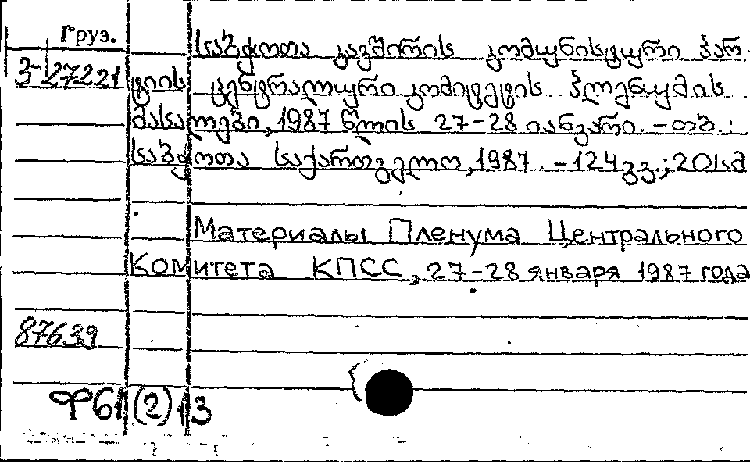 Груз.
3-27221
საბჭოთა კავშირის კომუნისტური პარ-
ტიის ცენტრალური კომიტეტის პლენუმის
მასალები, 1987 წლის 27-28 იანვარი. - თბ.:
საბჭოთა საქართველო, 1987. - 124 გვ.; 20 სმ
Материалы Пленума Центрального
Комитета КПСС, 27-28 января 1987 года
87639
Ф61(2)13